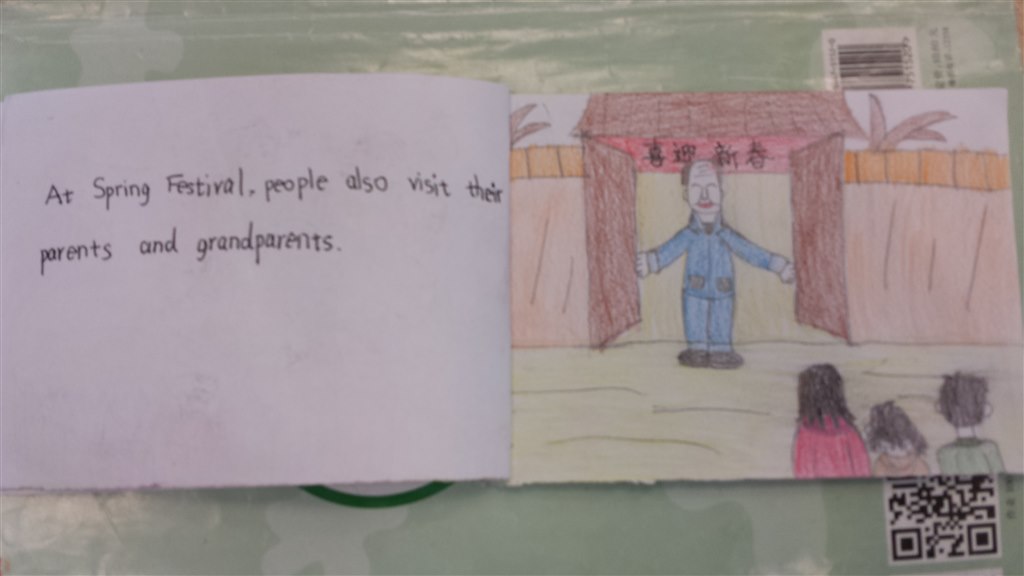 At Spring Festival, people also visit their
parents and grandparents.
喜迎 新春